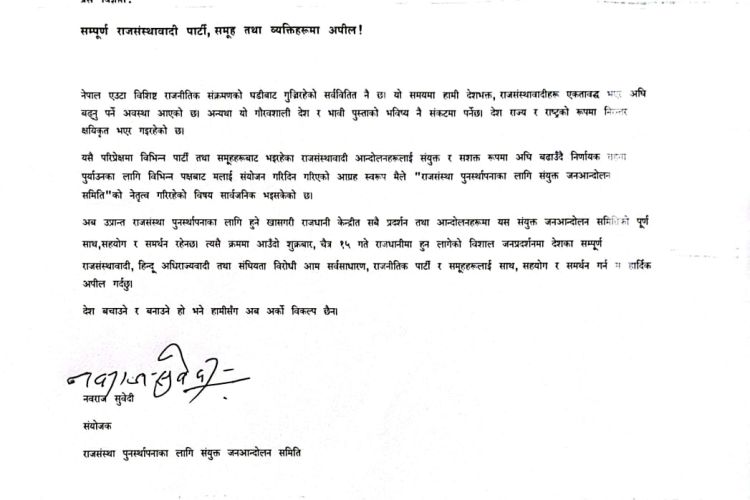 प्रेस विज्ञप्ती
सम्पूर्ण राजसंस्थावादी पार्टी, समूह तथा व्यक्तिहरूमा अपील!
नेपाल एउटा विशिष्ट राजनीतिक संक्रमणको घडीबाट गुज्रिरहेको सर्ववितित नै छ। यो समयमा हामी देशभक्त, राजसंस्थावादीहरू एकतावद्ध भएर अघि
बढ्नु पर्ने अवस्था आएको छ। अन्यथा यो गौरवशाली देश र भावी पुस्ताको भविष्य नै संकटमा पर्नेछ। देश राज्य र राष्ट्रको रूपमा निरन्तर
क्षयिकृत भएर गइरहेको छ।
यसै परिप्रेक्षमा विभिन्न पार्टी तथा समूहहरूबाट भइरहेका राजसंस्थावादी आन्दोलनहरूलाई संयुक्त र सशक्त रूपमा अघि बढाउँदै निर्णायक
पुर्याउनका लागि विभिन्न पक्षबाट मलाई संयोजन गरिदिन गरिएको आग्रह स्वरूप मैले "राजसंस्था पुनर्स्थापनाका लागि संयुक्त जनआन्दोलन
समिति"को नेतृत्व गरिरहेको विषय सार्वजनिक भइसकेको छ।
अब उप्रान्त राजसंस्था पुनर्स्थापनाका लागि हुने खासगरी राजधानी केन्द्रीत सबै प्रदर्शन तथा आन्दोलनहरूमा यस संयुक्त जनआन्दोलन समितिको पूर्ण
साथ,सहयोग र समर्थन रहनेछ। त्यसै क्रममा आउँदो शुक्रबार, चैत्र १५ गते राजधानीमा हुन लागेको विशाल जनप्रदर्शनमा देशका सम्पूर्ण
राजसंस्थावादी, हिन्दू अधिराज्यवादी तथा संघियता विरोधी आम सर्वसाधारण, राजनीतिक पार्टी र समूहहरूलाई साथ, सहयोग र समर्थन गर्न म हार्दिक
अपील गर्दछु।
देश बचाउने र बनाउने हो भने हामीसँग अब अर्को विकल्प छैन।
नवराज सुवेदी
नवराज सुवेदी
संयोजक
राजसंस्था पुनर्स्थापनाका लागि संयुक्त जनआन्दोलन समिति